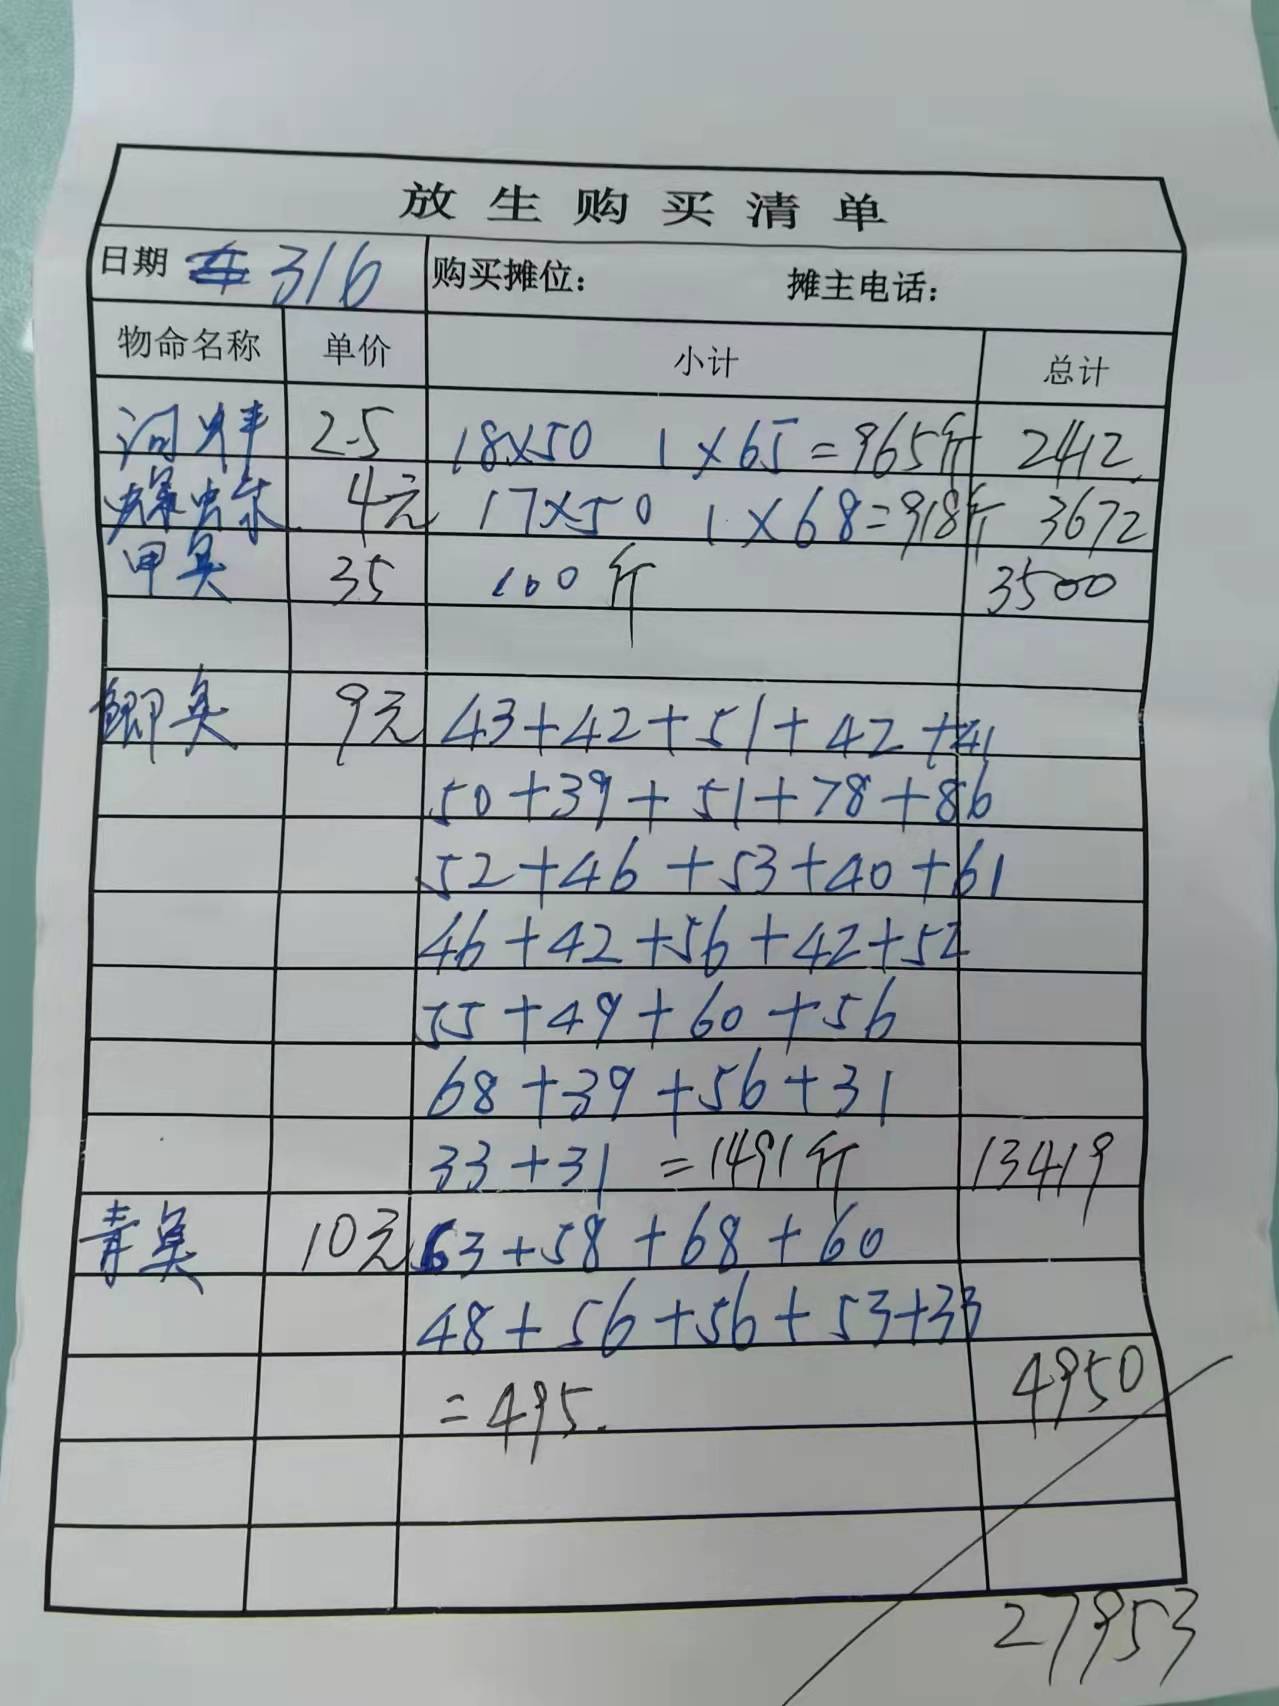 放生购买清单
日期 316 购买摊位： 摊主电话：
物命名称 单价 小计 总计
河蚌 2.5 18×50 1×65=965斤 2412
螺蛳 4元 17×50 1×68=918斤 3672
甲鱼 35 100斤 3500
鲫鱼 9元 43+42+51+42+41
50+39+51+78+86
52+46+53+40+61
46+42+56+42+52
55+49+60+56
68+39+56+31
33+31 =1491斤 13419
青鱼 10元 63+58+68+60
48+56+56+53+33
=495. 4950
27953